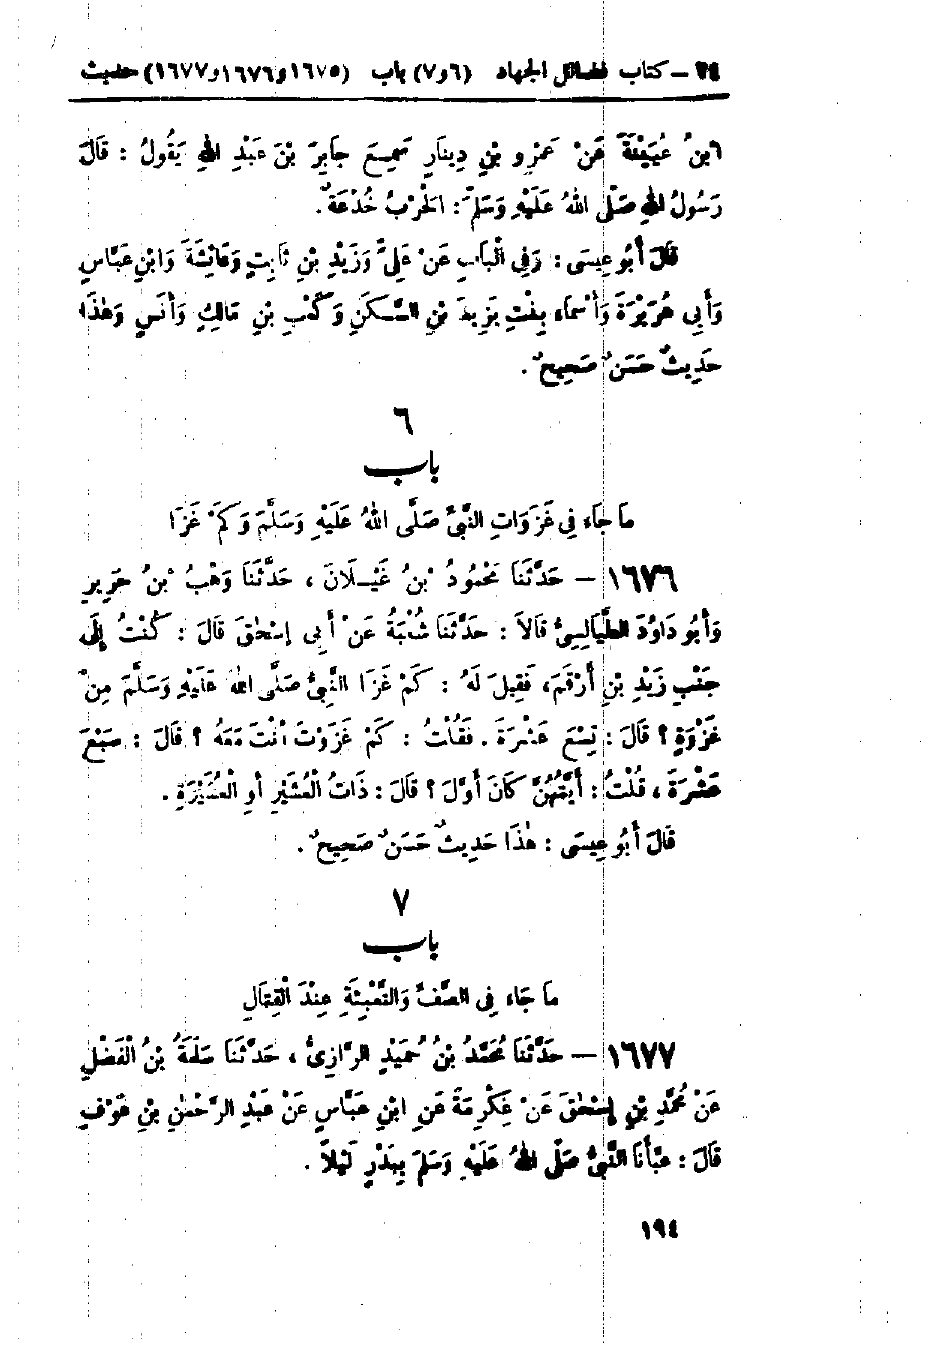 ٢٤ – كتاب فضائل الجهاد (٦و٧) باب (١٦٧٥و١٦٧٦و١٦٧٧) حديث
ابنُ عُيَيْنَةَ عَنْ عَمْرِو بْنِ دِينَارٍ سَمِعَ جَابِرَ بْنَ عَبْدِ اللهِ يَقُولُ : قَالَ
رَسُولُ اللهِ صَلَّى اللهُ عَلَيْهِ وَسَلَّمَ : الْحَرْبُ خُدْعَةٌ .
قَالَ أَبُو عِيسَى : وَفِي الْبَابِ عَنْ عَلِيٍّ وَزَيْدِ بْنِ ثَابِتٍ وَعَائِشَةَ وَابْنِ عَبَّاسٍ
وَأَبِي هُرَيْرَةَ وَأَسْمَاءَ بِنْتِ يَزِيدَ بْنِ السَّكَنِ وَكَعْبِ بْنِ مَالِكٍ وَأَنَسٍ وَهٰذَا
حَدِيثٌ حَسَنٌ صَحِيحٌ .
٦
باب
مَا جَاءَ فِي غَزَوَاتِ النَّبِيِّ صَلَّى اللهُ عَلَيْهِ وَسَلَّمَ وَكَمْ غَزَا
١٦٧٦ – حَدَّثَنَا مَحْمُودُ بْنُ غَيْلَانَ ، حَدَّثَنَا وَهْبُ بْنُ جَرِيرٍ
وَأَبُو دَاوُدَ الطَّيَالِسِيُّ قَالَا : حَدَّثَنَا شُعْبَةُ عَنْ أَبِي إِسْحٰقَ قَالَ : كُنْتُ إِلَى
جَنْبِ زَيْدِ بْنِ أَرْقَمَ، فَقِيلَ لَهُ : كَمْ غَزَا النَّبِيُّ صَلَّى اللهُ عَلَيْهِ وَسَلَّمَ مِنْ
غَزْوَةٍ ؟ قَالَ : تِسْعَ عَشْرَةَ . فَقُلْتُ : كَمْ غَزَوْتَ أَنْتَ مَعَهُ ؟ قَالَ : سَبْعَ
عَشْرَةَ ، قُلْتُ : أَيَّتُهُنَّ كَانَ أَوَّلَ ؟ قَالَ : ذَاتُ الْعُشَيْرِ أَوِ الْعُشَيْرَةِ .
قَالَ أَبُو عِيسَى : هٰذَا حَدِيثٌ حَسَنٌ صَحِيحٌ .
٧
باب
مَا جَاءَ فِي الصَّفِّ وَالتَّعْبِئَةِ عِنْدَ الْقِتَالِ
١٦٧٧ – حَدَّثَنَا مُحَمَّدُ بْنُ حُمَيْدٍ الرَّازِيُّ ، حَدَّثَنَا سَلَمَةُ بْنُ الْفَضْلِ
عَنْ مُحَمَّدِ بْنِ إِسْحٰقَ عَنْ عِكْرِمَةَ عَنِ ابْنِ عَبَّاسٍ عَنْ عَبْدِ الرَّحْمٰنِ بْنِ عَوْفٍ
قَالَ : عَبَّأَنَا النَّبِيُّ صَلَّى اللهُ عَلَيْهِ وَسَلَّمَ بِبَدْرٍ لَيْلاً .
١٩٤